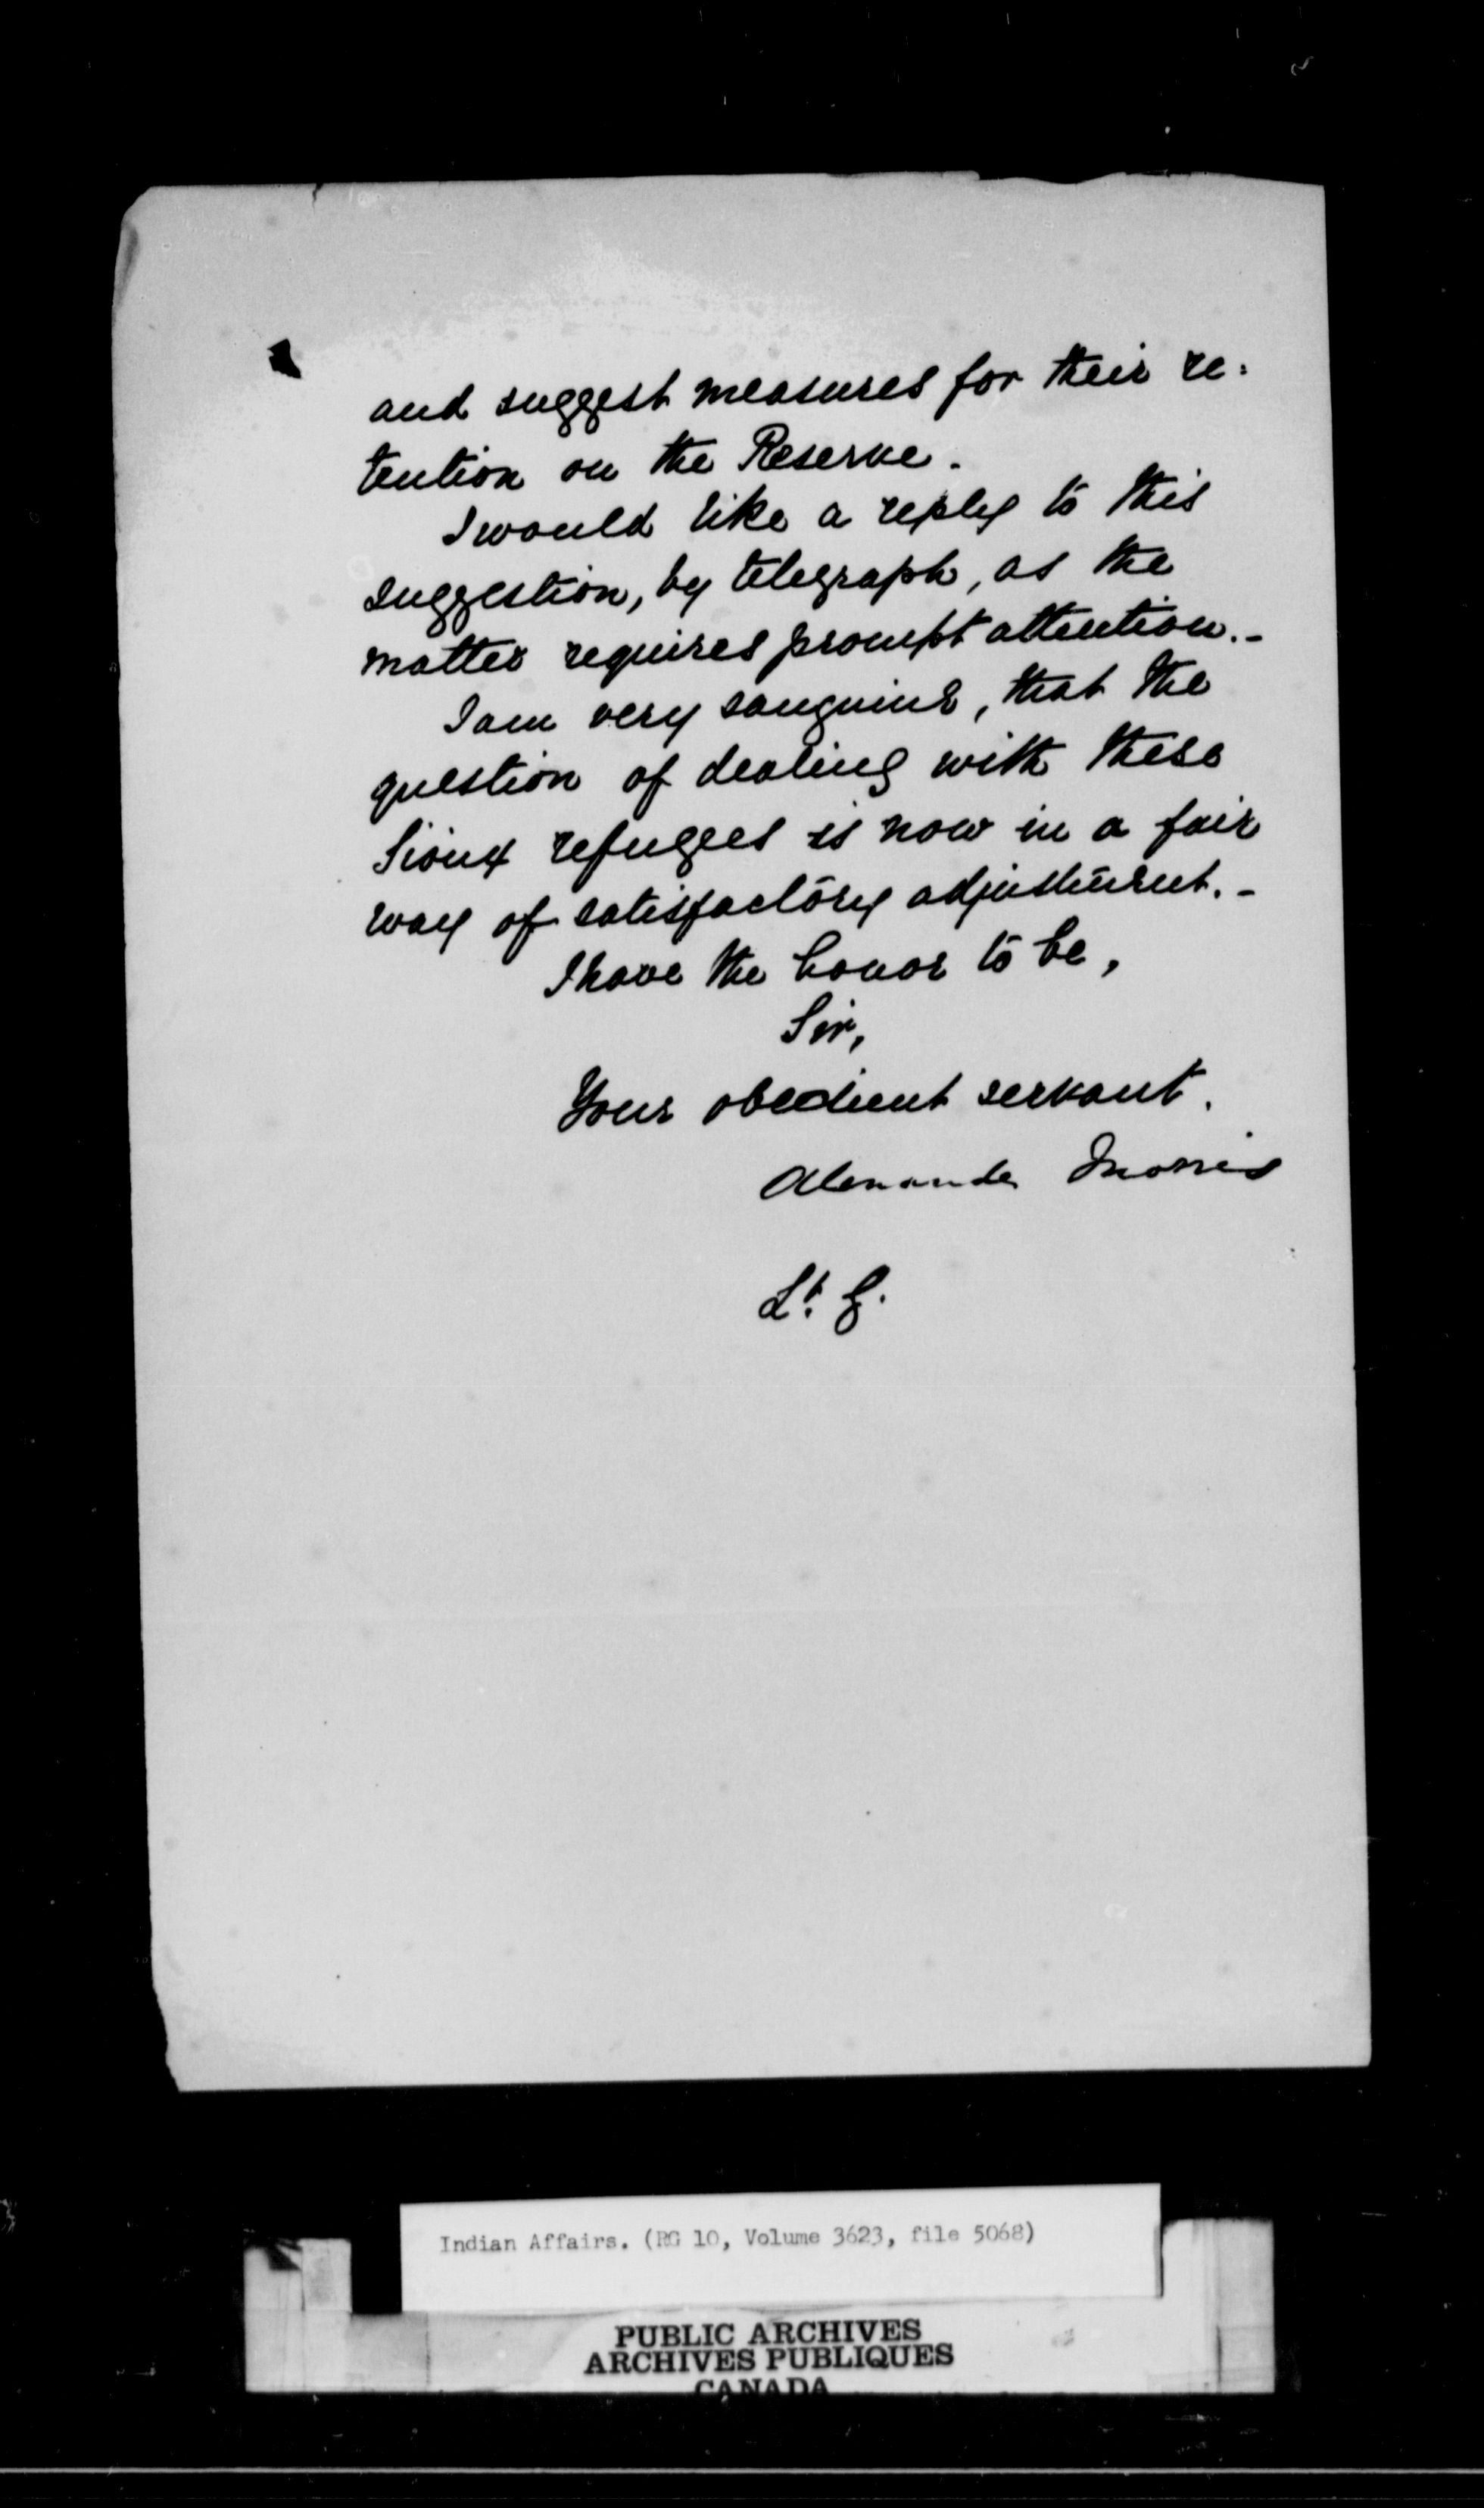 and suggest measures for their re=
tention on the Reserve.
I would like a reply to this
suggestion, by telegraph, as the
matter requires prompt attention.-
I am very sanguine, that the
question of dealing with these
Sioux refugees is now in a fair
way of satisfactory adjustment.-
I have the honor to be,
Sir,
Your obedient servant.
Alexander Morris
Lt. G.
Indian Affairs. (RG 10, Volume 3623, file 5068)
PUBLIC ARCHIVES
ARCHIVES PUBLIQUES
CANADA